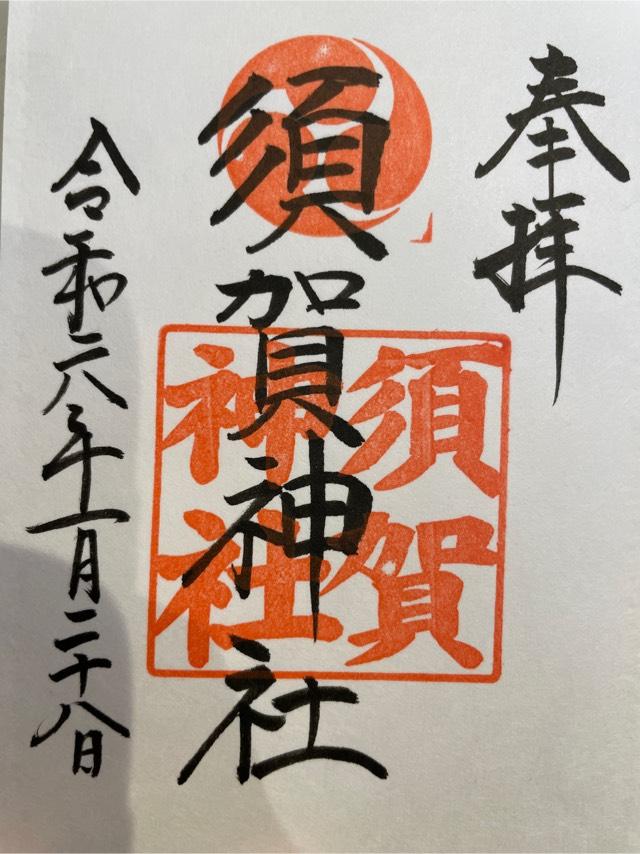 奉拝
須賀神社
須賀
神社
令和六年一月二十八日